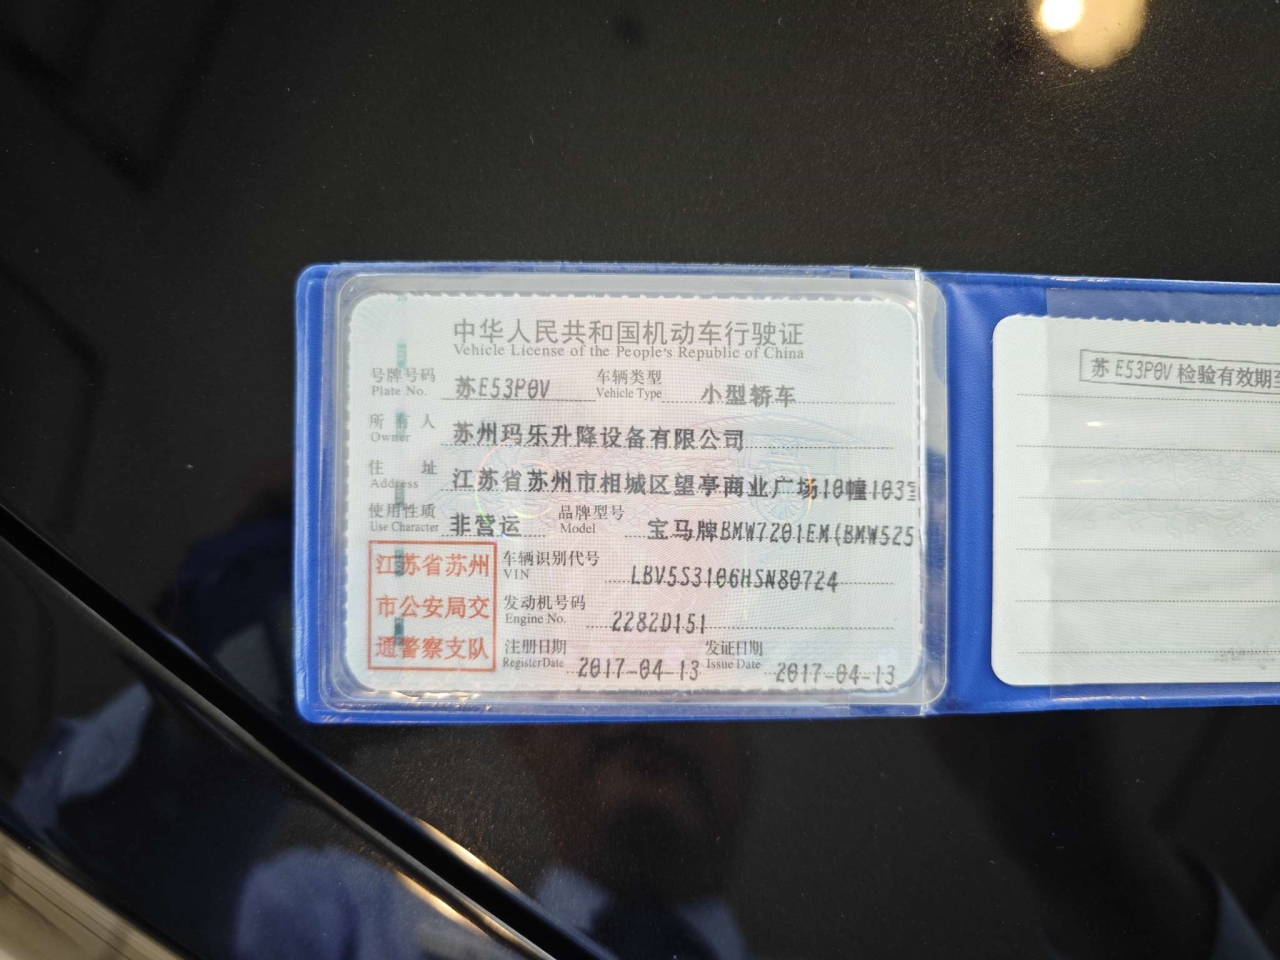 中华人民共和国机动车行驶证
Vehicle License of the People's Republic of China
号牌号码 苏E53P0V 车辆类型 小型轿车
Plate No. Vehicle Type
所有人 苏州玛乐升降设备有限公司
Owner
住址 江苏省苏州市相城区望亭商业广场10幢103室
Address
使用性质 非营运 品牌型号 宝马牌BMW7201EM(BMW525
Use Character Model
江苏省苏州
市公安局交
通警察支队
车辆识别代号 LBV5S3106HSN80724
VIN
发动机号码 2282D151
Engine No.
注册日期 2017-04-13 发证日期 2017-04-13
Register Date Issue Date
苏E53P0V 检验有效期至